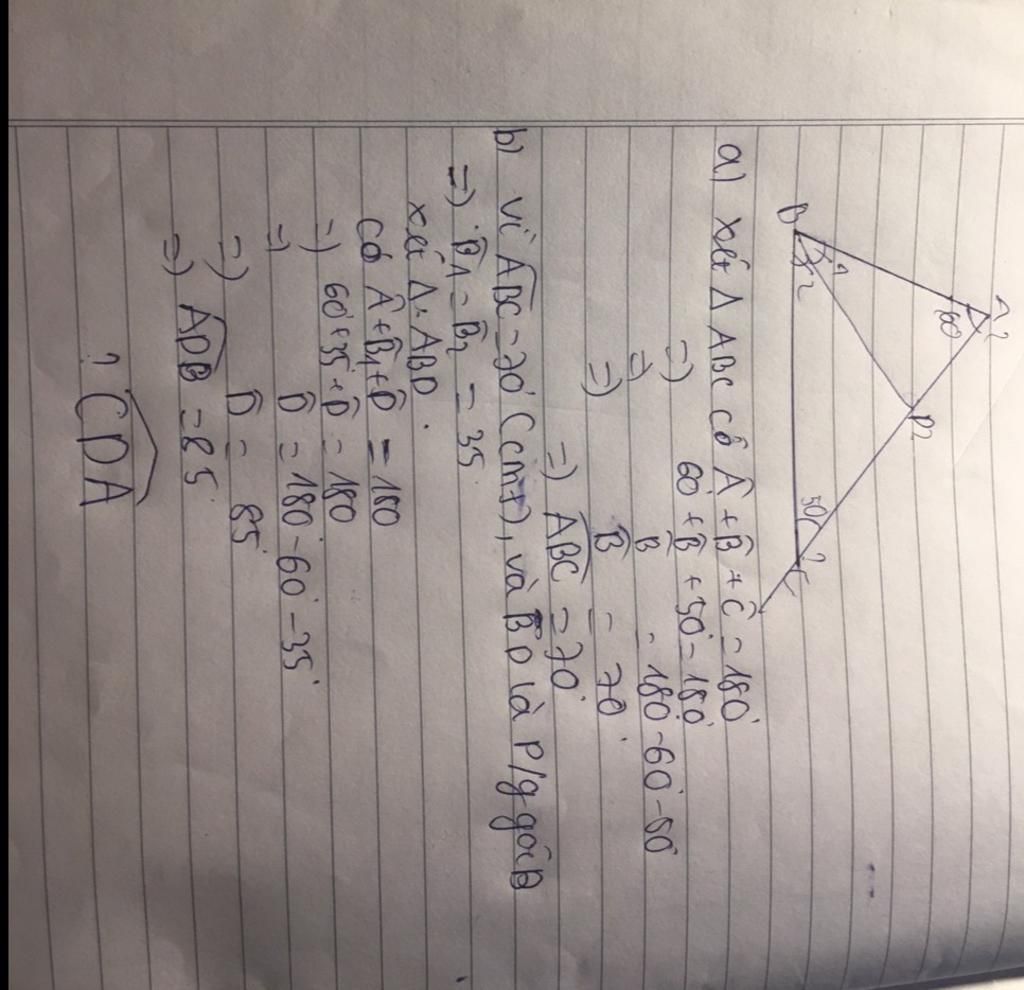 A
60°
B
1
2
D
50°
C
a) xét Δ ABC có Â + B̂ + Ĉ = 180°
=) 60° + B̂ + 50° = 180°
=) B̂ = 180° - 60° - 50°
=) B̂ = 70°
=) ABC = 70°
b) vì ABC = 70° (cmt), và BD là p/g góc B
=) B̂1 = B̂2 = 35
xét Δ ABD.
có Â + B̂1 + D̂ = 180
=) 60° + 35° + D̂ = 180
=) D̂ = 180° - 60° - 35°
=) D̂ = 85°
=) ADB = 85°
? CDA